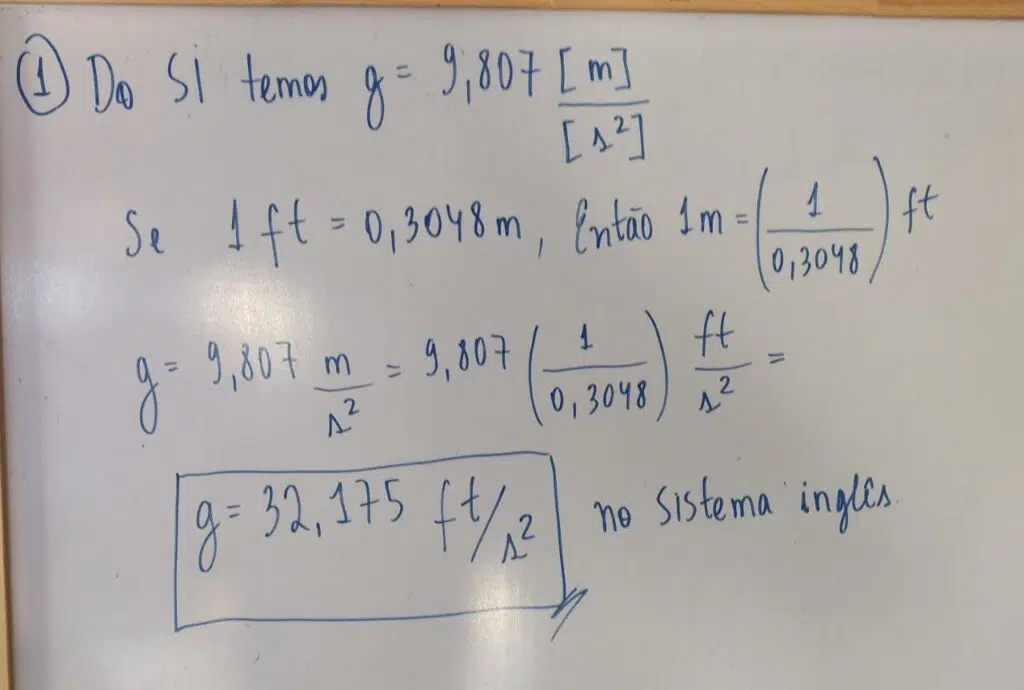 ① Do SI temos g = 9,807 [m]/[s²]
Se 1 ft = 0,3048 m, Então 1 m = (1/0,3048) ft
g = 9,807 m/s² = 9,807 (1/0,3048) ft/s² =
g = 32,175 ft/s² no sistema inglês.